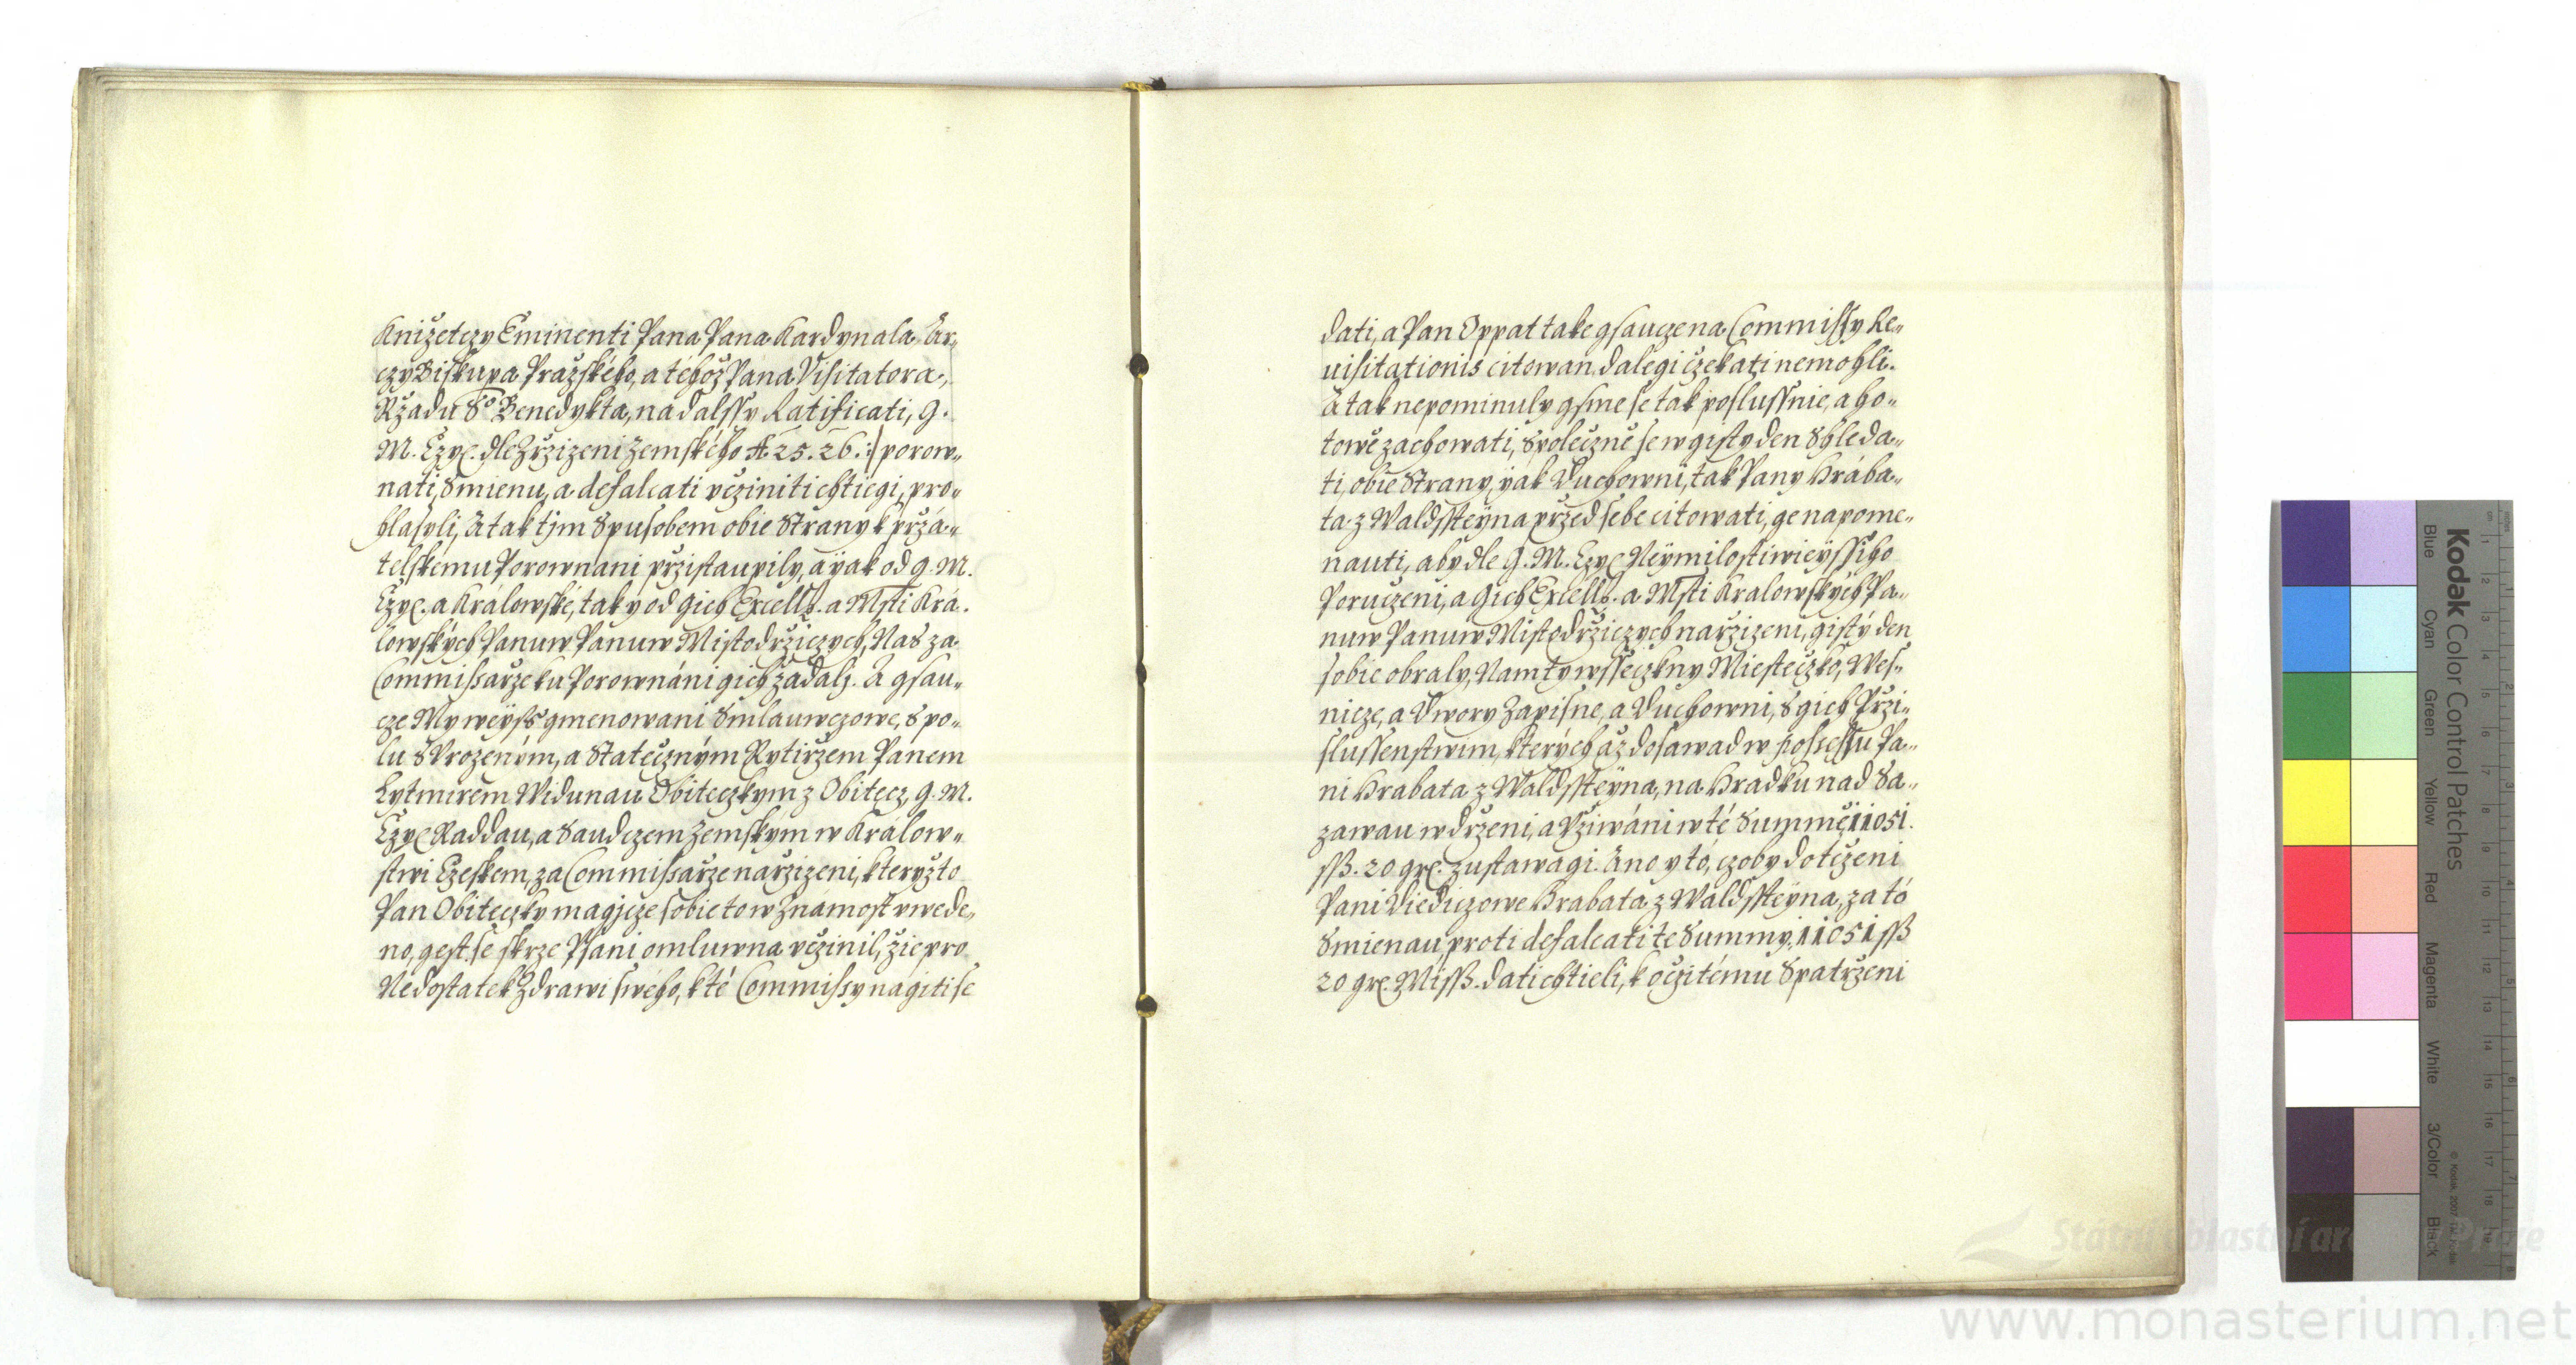 Knižetczy Eminenti Pana Pana Kardynala Ar„
czyBiskupa Pražského, a téhož Pána Visitatora,
Ržadu S° Benedykta, na dalssy Ratificati, G.
M. Czyę. dle Zržizeni Zemského A. 25. 26. :/ porow„
nati, Smienu, a defalcati včziniti chtiegi, pro„
hlasyli, A tak tjm Spusobem obie Strany k přzá„
telskému Porownani přzistaupily, a yak od G. M.
Czyę. a Králowské, tak y od Gich Excell. a Msti Krá„
lowských Panuw Panuw Mistodržiczych, Nás za
Commissařze ku Porownáni gich žádali. A gsau„
cze My weyss gmenowani Smlauwczowe, Spo„
lu S Vrozeným, a Statečzným Rytiržem Panem
Lytmirem Widunau Obiteczkym z Obitecz, G. M.
Czyę Raddau, a Saudczem Zemským w Králow„
stwi Czeskem, za Commissařze nařzizeni, kteryžto
Pan Obiteczky magjcze sobie to w Známost vwede„
no, gest se skrze Psani omluwna včzinil, žie pro
Nedostatek Zdrawi swého, k té Commissy nagiti se
dati, a Pan Oppat take gsaucze na Commissy Re„
uisitationis citowan, dalegi čzekati nemohli.
A tak nepominuly gsme se tak poslussnie, a ho„
towě zachowati, Společzně se w gisty den Shleda„
ti, obie Strany, yak Duchowni, tak Pany Hrába„
ta z Waldssteyna přzed sebe citowati, ge napome„
nauti, aby dle G. M. Czyę Neymilostiwieyssiho
Poruczeni, a Gich Excell. a Msti Kralowských Pa„
nuw Panuw Mistodržiczych nařzizeni, gistý den
sobie obraly, Nam ty wsseczkny Miesteczko, Wes„
nicze, a Dwory Zapisne, a Duchowni, S gich Přzi„
slussenstwim, kterých až dosawad w possessu Pa„
ni Hrabata z Waldssteyna, na Hradku nad Sa„
zawau w drženi, a Vžiwáni w té Summě 11051.
sß. 20 grę. zustawagi. Ano y to, czoby dotčzeni
Pani Diediczowe Hrabata z Waldssteyna, za to
Smienau, proti defalcati te Summy, 11051 sß
20 grę. Misß. dati chtieli, k očzitému Spatřzeni
www.monasterium.net
Kodak Color Control Patches
Blue
Cyan
Green
Yellow
Red
Magenta
White
3/Color
Black